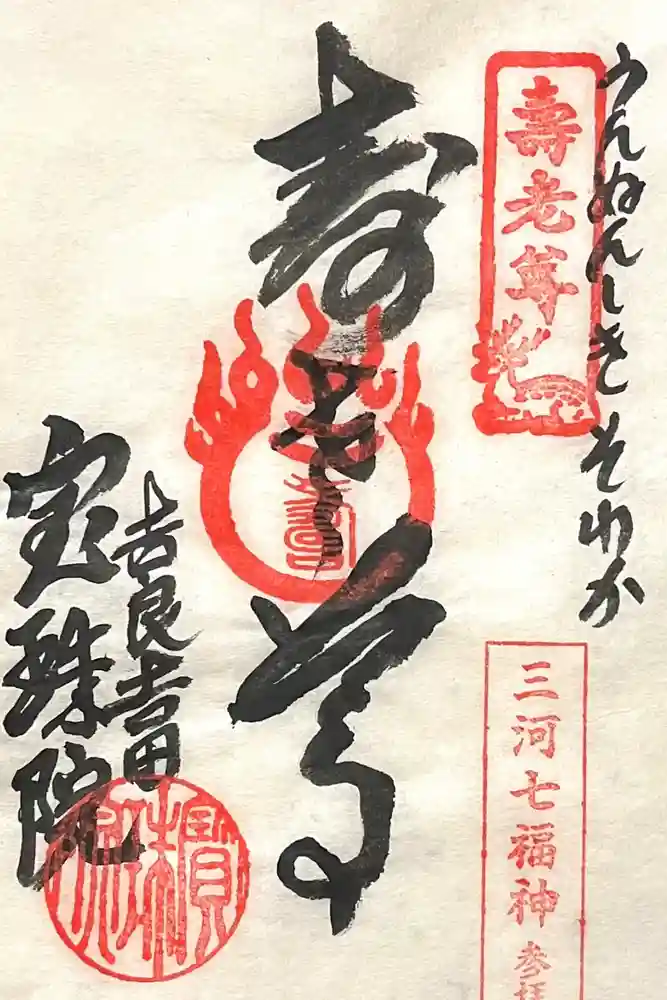 うんぬんしき そわか
壽老尊
三河七福神 参拝
寿老尊
吉良吉田
宝珠院